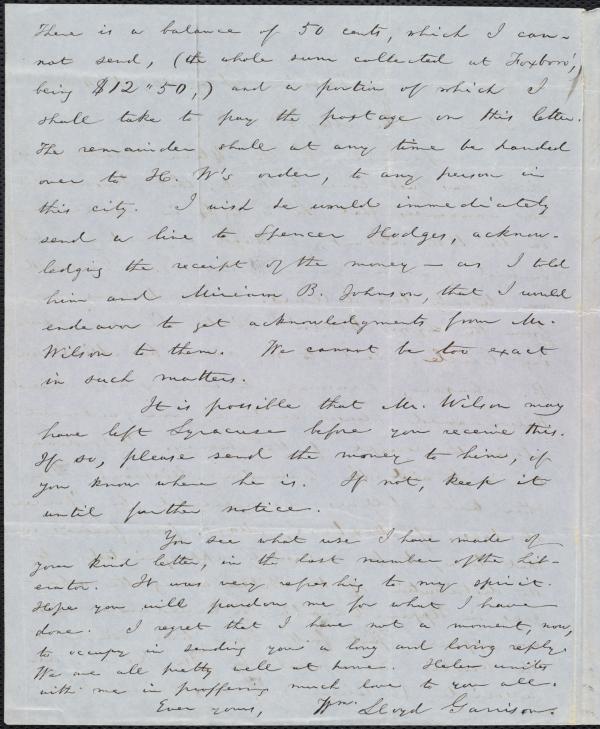 There is a balance of 50 cents, which I can-
not send, (the whole sum collected at Foxboro',
being $12 "50,) and a portion of which I
shall take to pay the postage on this letter.
The remainder shall at any time be handed
over to H. W's order, to any person in
this city. I wish he would immediately
send a line to Spencer Hodges, acknow-
ledging the receipt of the money — as I told
him and Miriam B. Johnson, that I would
endeavor to get acknowledgments from Mr.
Wilson to them. We cannot be too exact
in such matters.
It is possible that Mr. Wilson may
have left Syracuse before you receive this.
If so, please send the money to him, if
you know where he is. If not, keep it
until further notice.
You see what use I have made of
your kind letter, in the last number of the Lib-
erator. It was very refreshing to my spirit.
Hope you will pardon me for what I have
done. I regret that I have not a moment, now,
to occupy in sending you a long and loving reply.
We are all pretty well at home. Helen unites
with me in proffering much love to you all.
Ever yours, Wm. Lloyd Garrison.